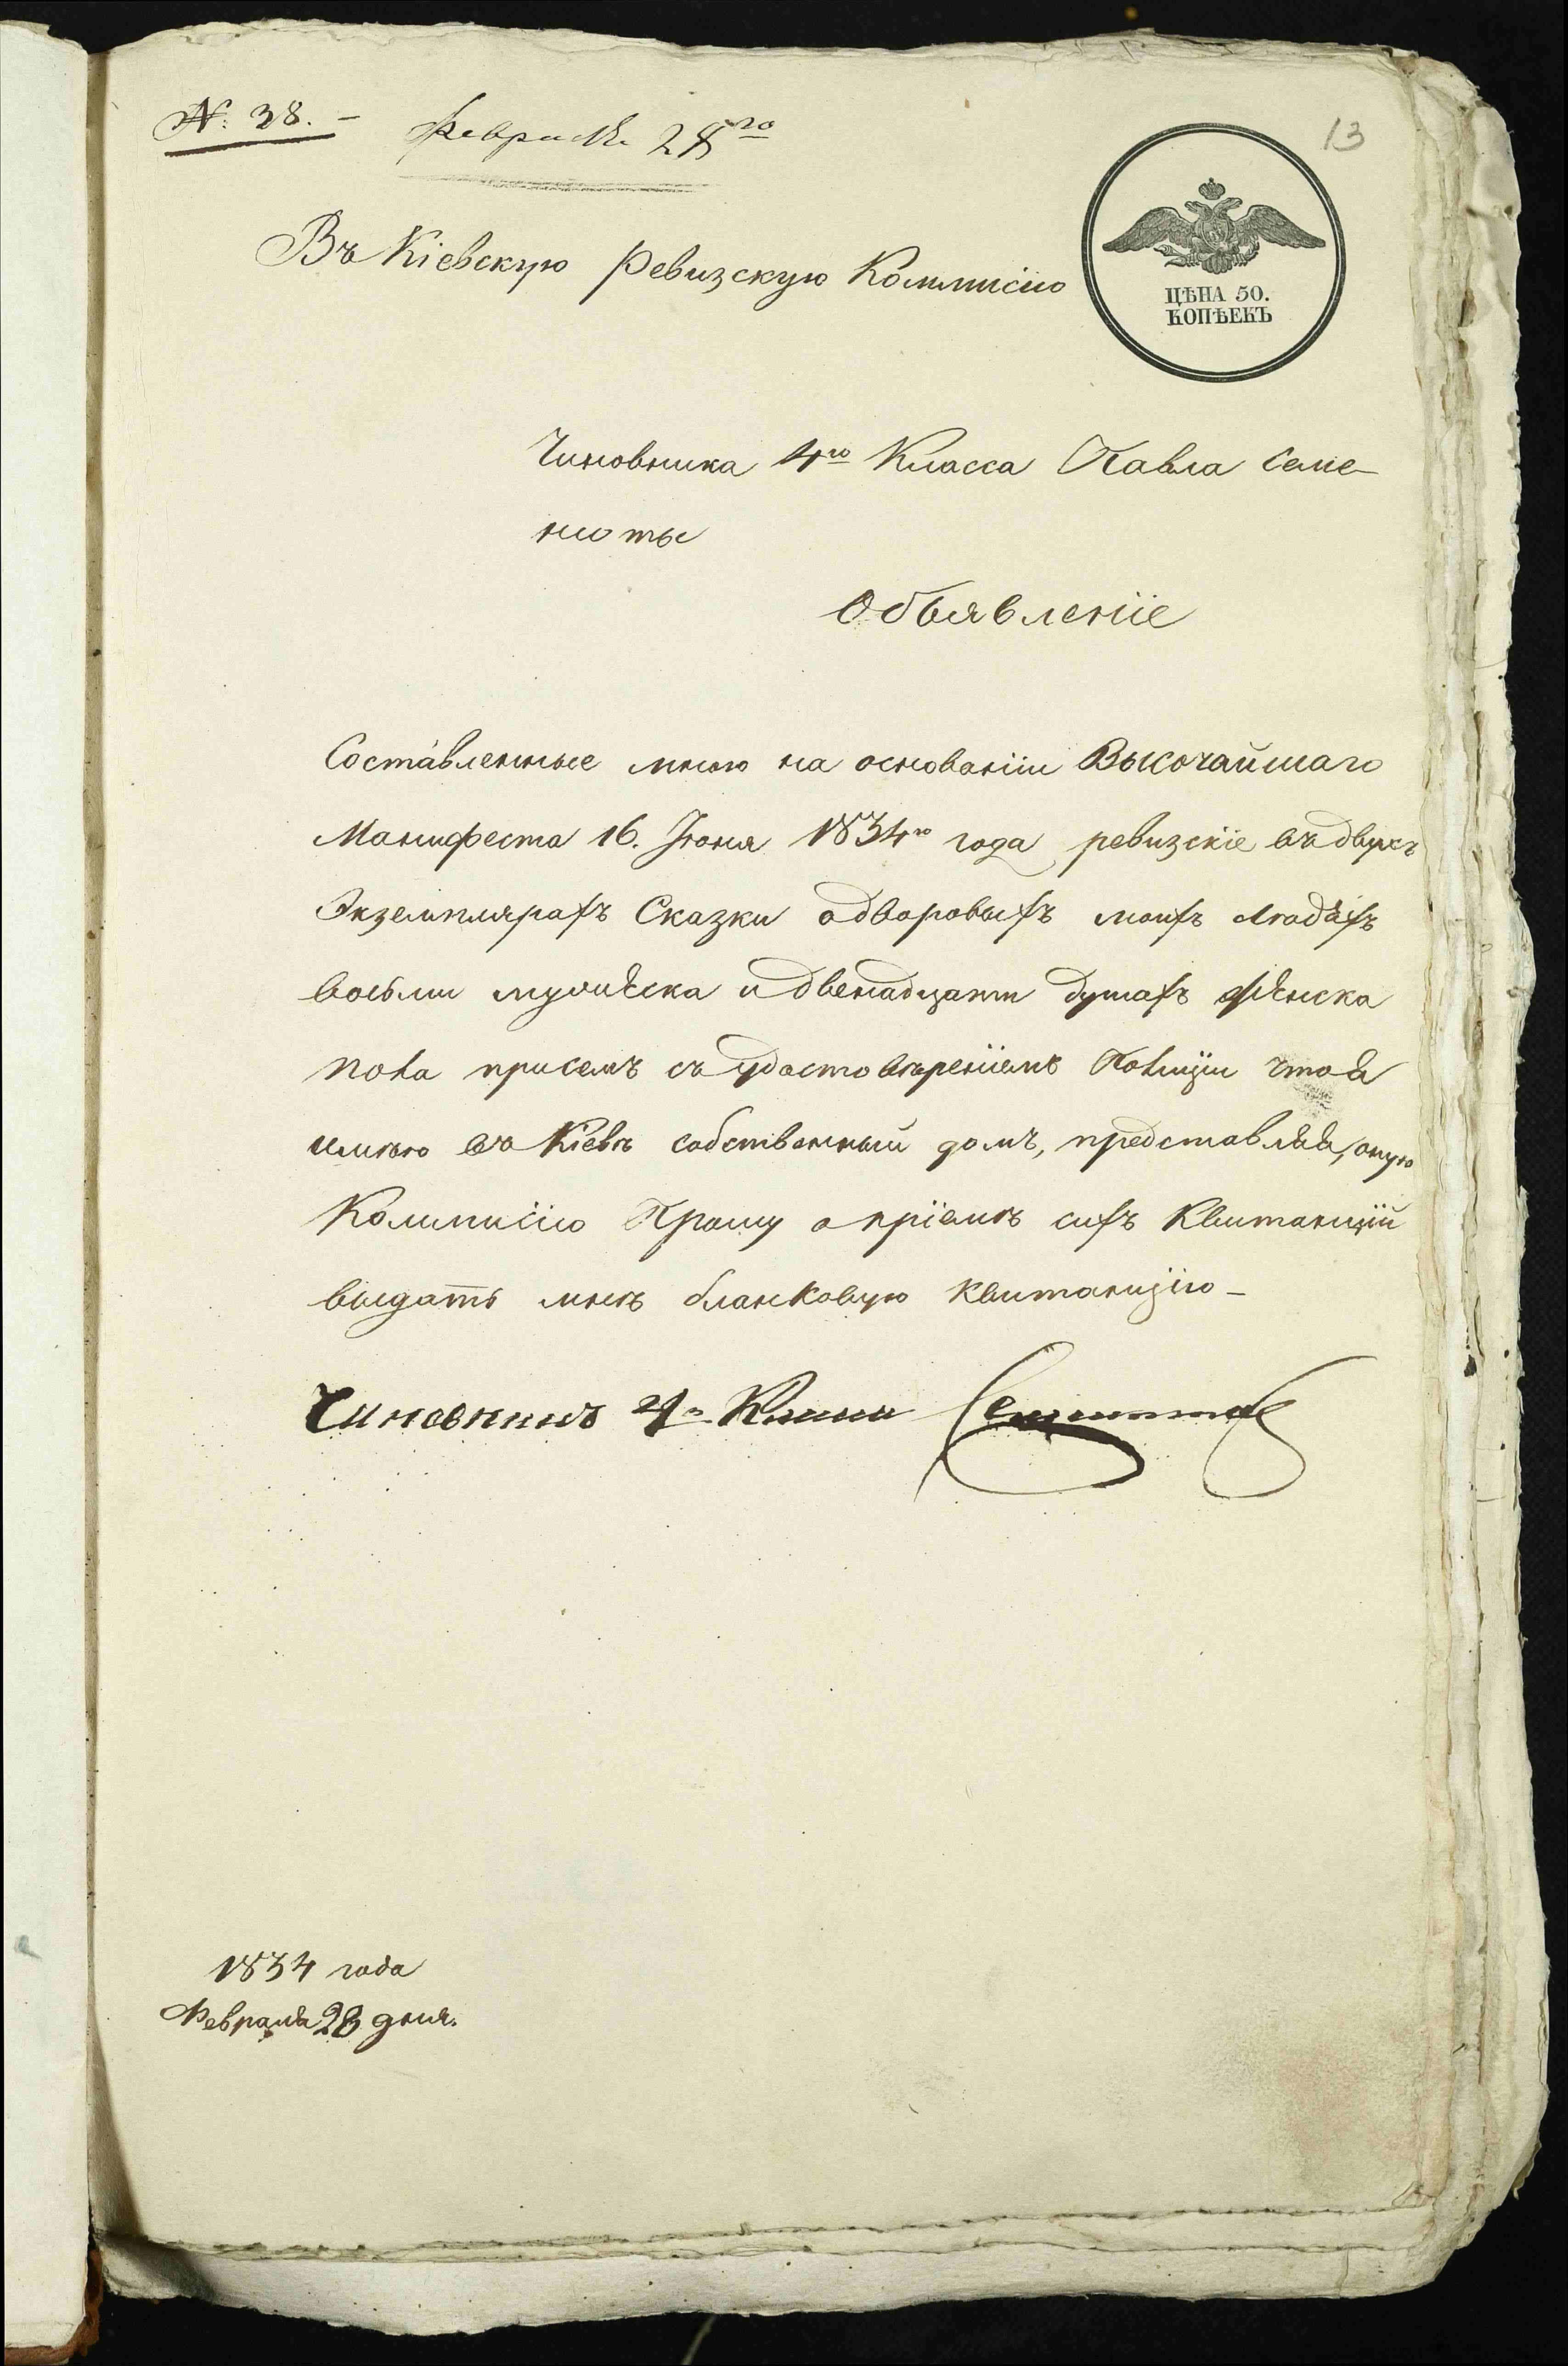 №: 38. –
Февраля 28го
13
Въ Кіевскую Ревизскую Коммисію
ЦѢНА 50.
КОПѢЕКЪ
Чиновника 4го Класса Павла Семе-
нюты
Объявленіе
Составленные мною на основаніи Высочайшаго
Манифеста 16. Іюня 1834го года ревизскіе въ двухъ
Экземплярахъ Сказки о дворовыхъ моихъ людяхъ
восьми мужеска и двенадцати душахъ женска
пола присемъ съ удостовѣреніемъ Полиціи что я
имѣю въ Кіевѣ собственный домъ, представляя, оную
Коммисію Прошу о пріемѣ сихъ Квитанціи
выдать мнѣ бланковую Квитанцію –
Чиновникъ 4го Класса Семенюта
1834 года
Февраля 28 дня.